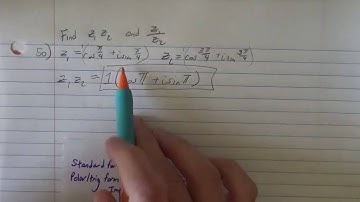 Find z₁z₂ and z₁/z₂
50) z₁ = 1(cos π/4 + i sin π/4) z₂ = 1(cos 3π/4 + i sin 3π/4)
z₁z₂ = 1(cos π + i sin π)
Standard for
Polar/trig form
Im